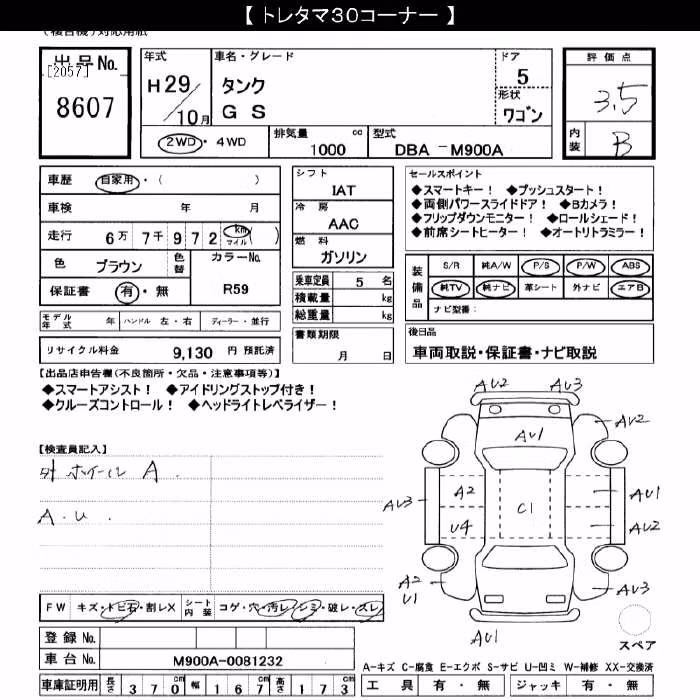 【 トレタマ30コーナー 】
(複合機)対応用紙
出品No.
[2057]
8607
年式
H29/10月
車名・グレード
タンク
GS
ドア
5
形状
ワゴン
2WD・4WD
排気量 cc
1000
型式
DBA -M900A
評価点
3.5
内装
B
車歴 自家用・( )
車検 年 月
走行 6万 7千 9 7 2 km マイル ( )
色 ブラウン 色替
カラーNo.
R59
保証書 有・無
モデル年式 年 ハンドル 左・右 ディーラー・並行
リサイクル料金 9,130 円 預託済
シフト
IAT
冷房
AAC
燃料
ガソリン
乗車定員 5 名
積載量 kg
総重量 kg
書類期限
月 日
セールスポイント
◆スマートキー! ◆プッシュスタート!
◆両側パワースライドドア! ◆Bカメラ!
◆フリップダウンモニター! ◆ロールシェード!
◆前席シートヒーター! ◆オートリトラミラー!
装備品
S/R 純A/W P/S P/W ABS
純TV 純ナビ 革シート 外ナビ エアB
ナビ型番:
後日品
車両取説・保証書・ナビ取説
【出品店申告欄(不良箇所・欠品・注意事項等)】
◆スマートアシスト! ◆アイドリングストップ付き!
◆クルーズコントロール! ◆ヘッドライトレベライザー!
【検査員記入】
外 ホイール A.
A.U.
AU2 AU3
AU2
AU1
AU3 A2 C1 AU1
U4 AU2
A2
U1
AU3
AU1
スペア
FW キズ・トビ石・割レX シート内装 コゲ・穴・汚レ・シミ・破レ・スレ
登録No.
車台No. M900A-0081232
車庫証明用 長さ 370cm 幅 167cm 高さ 173cm
A-キズ C-腐食 E-エクボ S-サビ U-凹ミ W-補修 XX-交換済
工具 有・無 ジャッキ 有・無